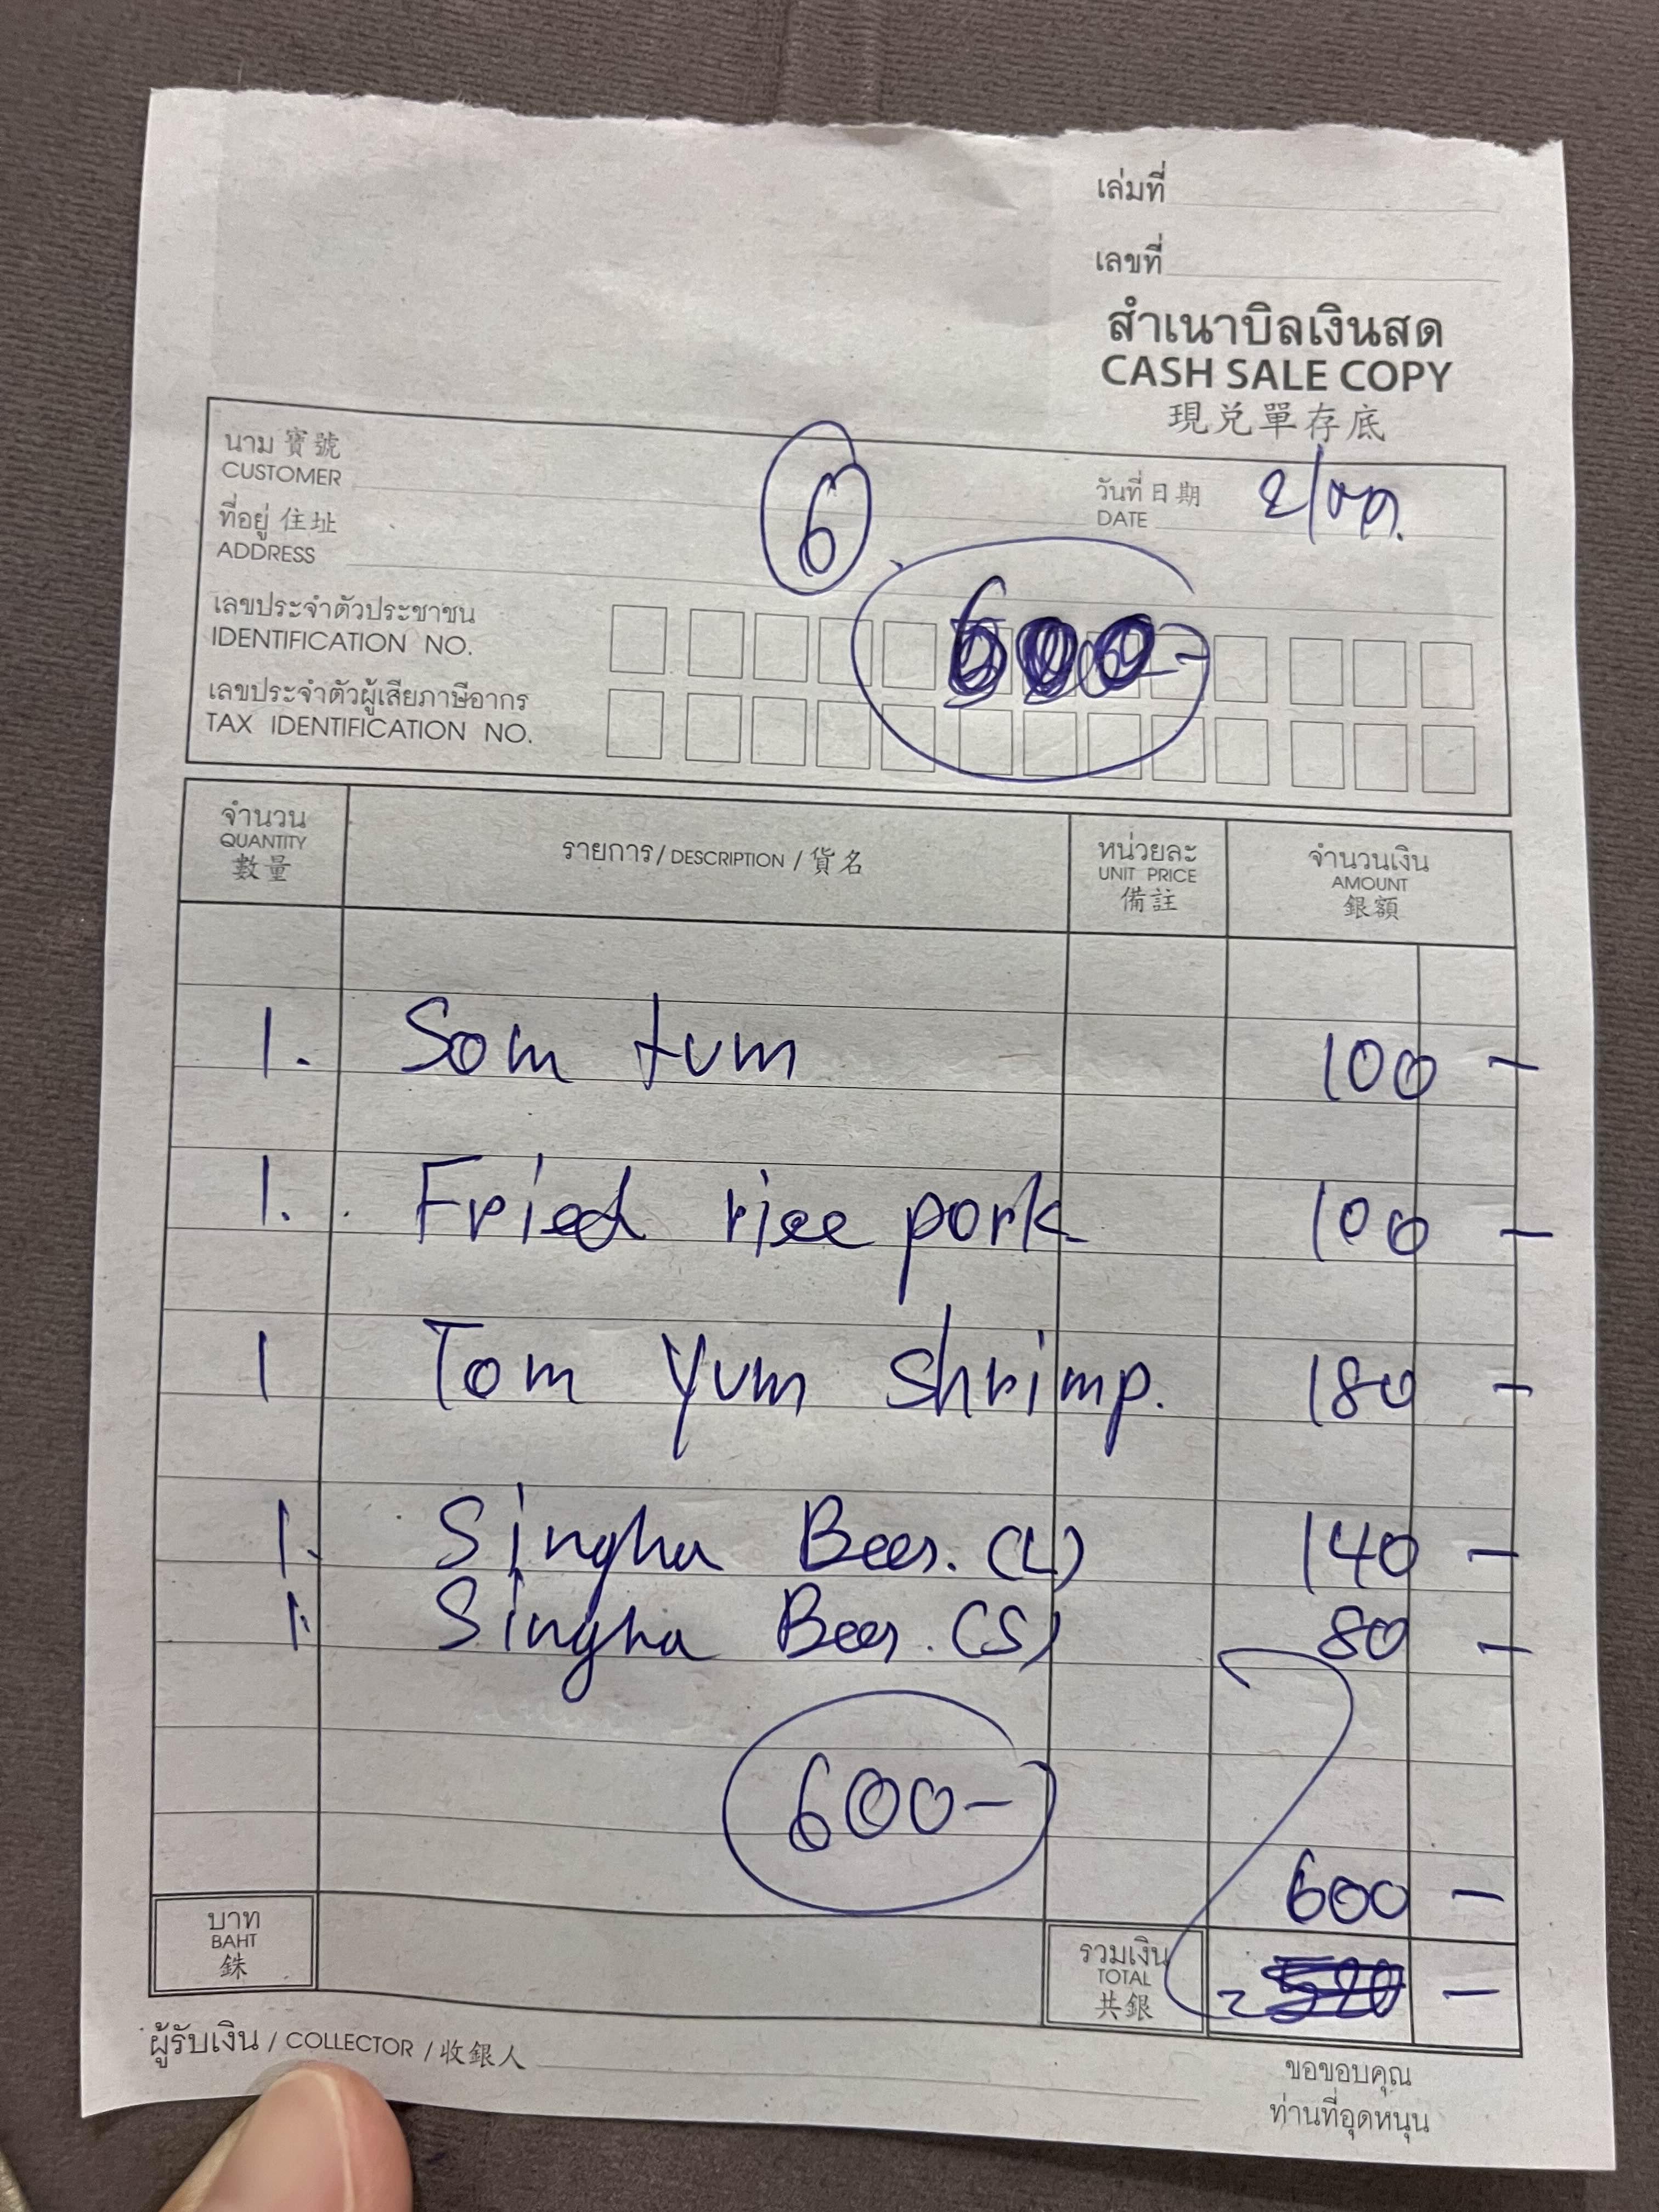 เล่มที่
เลขที่
สำเนาบิลเงินสด
CASH SALE COPY
現兑單存底
นาม 寶號
CUSTOMER
6
วันที่ 日期
DATE
2/
ที่อยู่ 住址
ADDRESS
เลขประจำตัวประชาชน
IDENTIFICATION NO.
600-
เลขประจำตัวผู้เสียภาษีอากร
TAX IDENTIFICATION NO.
จำนวน
QUANTITY
數量
รายการ / DESCRIPTION / 貨名
หน่วยละ
UNIT PRICE
備註
จำนวนเงิน
AMOUNT
銀額
1. Som tum 100 -
1. Fried rice pork 100 -
1 Tom Yum Shrimp. 180 -
1. Singha Beer. (L) 140 -
1. Singha Beer. (S) 80 -
600-
600 -
บาท
BAHT
銖
รวมเงิน
TOTAL
共銀
520 -
ผู้รับเงิน / COLLECTOR / 收銀人
ขอขอบคุณ
ท่านที่อุดหนุน